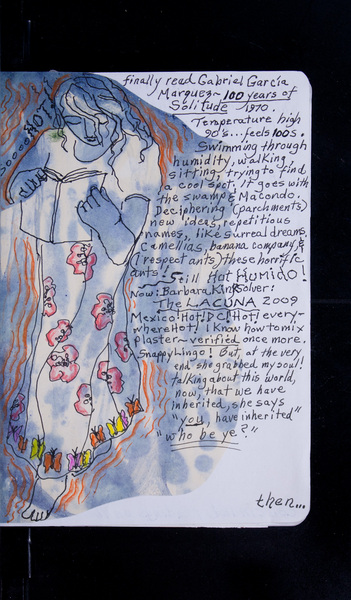 finally read Gabriel García
Marquez~ 100 years of
Solitude 1970.
Temperature high
90's...feels 100s.
Swimming through
humidity, walking,
sitting, trying to find
a cool spot, it goes with
the swamp & Macondo.
Deciphering (parchments)
new ideas, repetitious
names, like surreal dreams,
camellias, banana company, &
(I respect ants) these horrific
ants! Still Hot HUMIDO!
Now: Barbara Kingsolver:
The LACUNA 2009
Mexico! Hot! DC! Hot! every-
where Hot! I know how to mix
plaster~ verified once more.
Snappy Lingo! But, at the very
end she grabbed my soul!
talking about this world,
now, that we have
inherited, she says
"you, have inherited"
"who be ye?"
then...
HOT